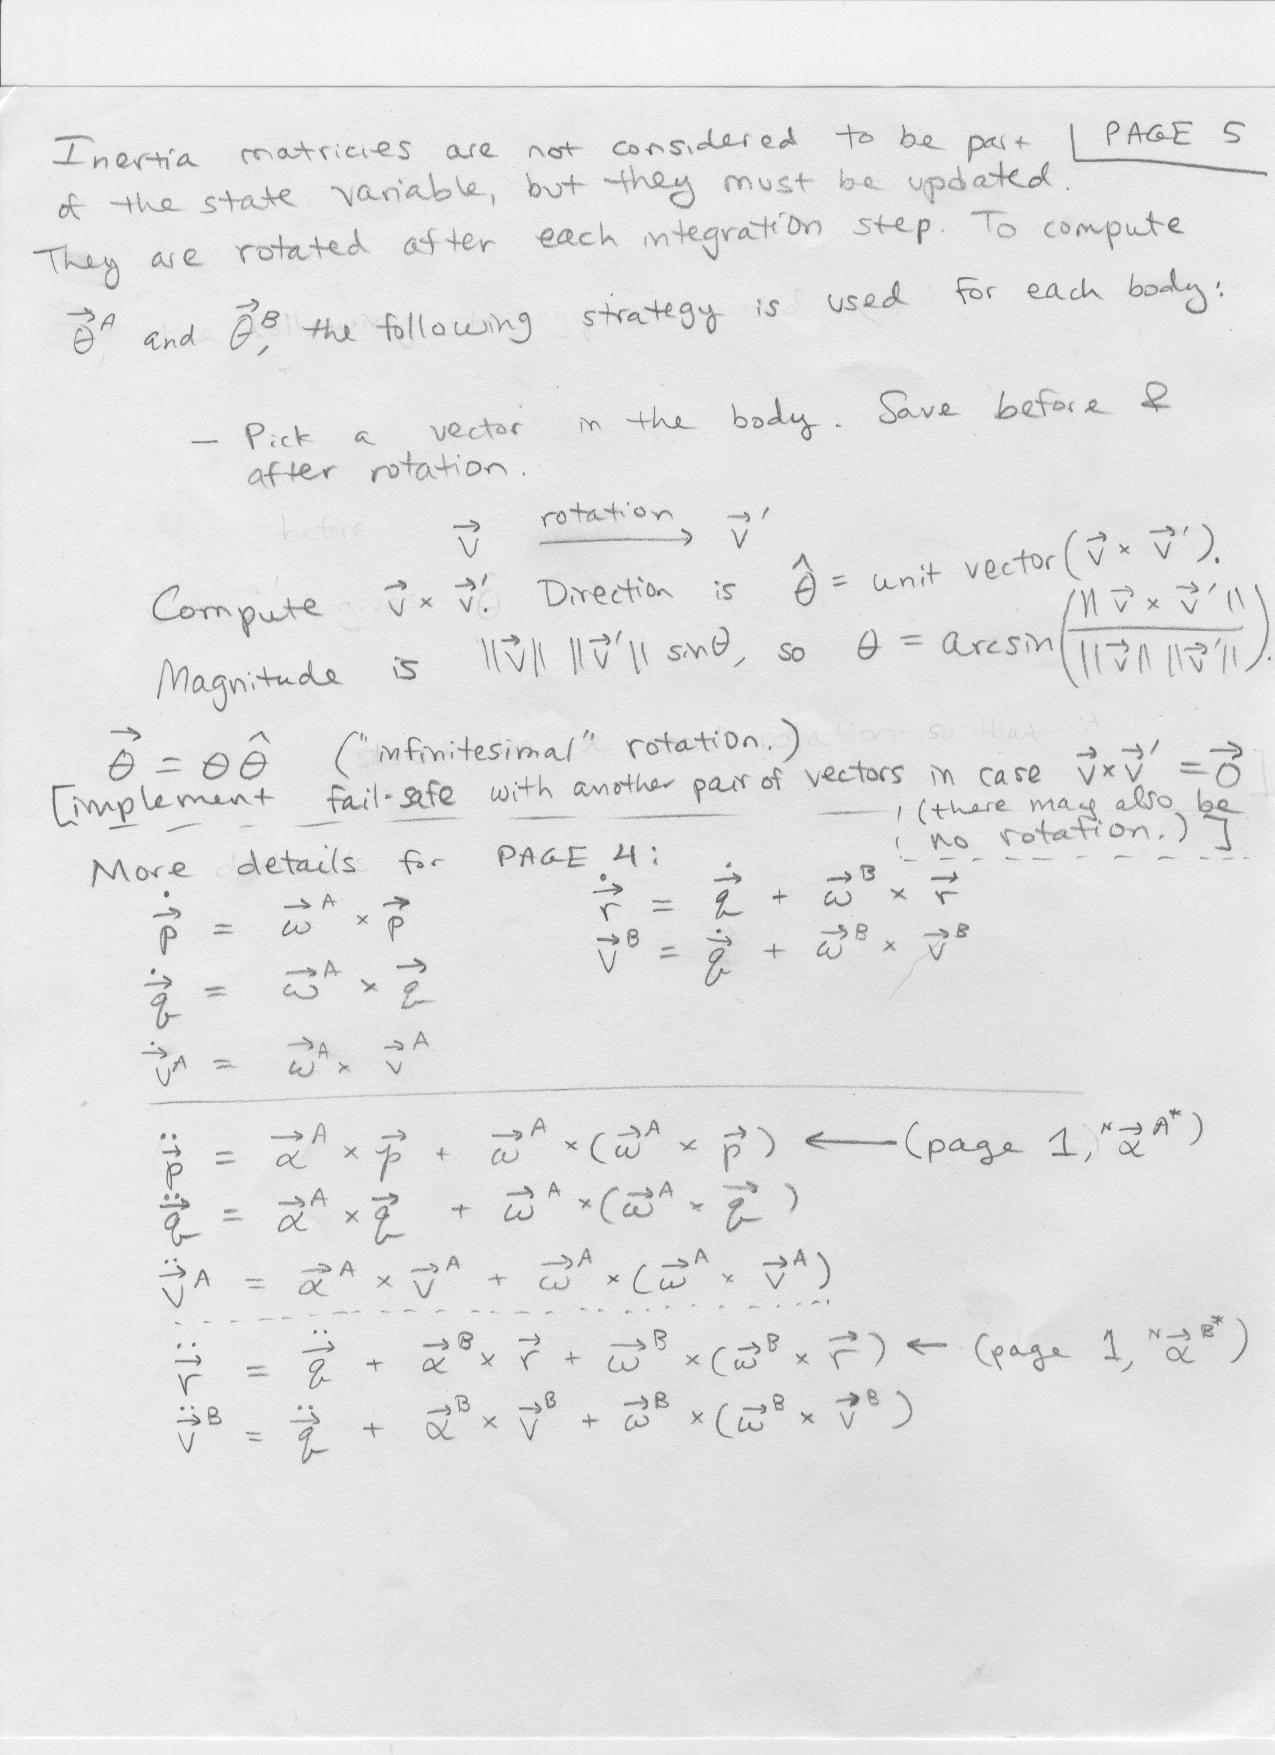 Inertia matricies are not considered to be part
PAGE 5
of the state variable, but they must be updated.
They are rotated after each integration step. To compute
θ⃗ᴬ and θ⃗ᴮ, the following strategy is used for each body:
— Pick a vector in the body. Save before &
after rotation.
v⃗ rotation → v⃗′
Compute v⃗ × v⃗′. Direction is θ̂ = unit vector(v⃗ × v⃗′).
Magnitude is ‖v⃗‖ ‖v⃗′‖ sinθ, so θ = arcsin(‖v⃗ × v⃗′‖ / ‖v⃗‖ ‖v⃗′‖).
θ⃗ = θ θ̂ ("infinitesimal" rotation.)
[implement fail-safe with another pair of vectors in case v⃗×v⃗′ = 0⃗
(there may also be
no rotation.)]
More details for PAGE 4:
ṗ⃗ = ω⃗ᴬ × p⃗
ṙ⃗ = q̇⃗ + ω⃗ᴮ × r⃗
q̇⃗ = ω⃗ᴬ × q⃗
v⃗ᴮ = q̇⃗ + ω⃗ᴮ × v⃗ᴮ
v̇⃗ᴬ = ω⃗ᴬ × v⃗ᴬ
p̈⃗ = α⃗ᴬ × p⃗ + ω⃗ᴬ × (ω⃗ᴬ × p⃗) ← (page 1, ᴺα⃗ᴬ*)
q̈⃗ = α⃗ᴬ × q⃗ + ω⃗ᴬ × (ω⃗ᴬ × q⃗)
v̈⃗ᴬ = α⃗ᴬ × v⃗ᴬ + ω⃗ᴬ × (ω⃗ᴬ × v⃗ᴬ)
r̈⃗ = q̈⃗ + α⃗ᴮ × r⃗ + ω⃗ᴮ × (ω⃗ᴮ × r⃗) ← (page 1, ᴺα⃗ᴮ*)
v̈⃗ᴮ = q̈⃗ + α⃗ᴮ × v⃗ᴮ + ω⃗ᴮ × (ω⃗ᴮ × v⃗ᴮ)